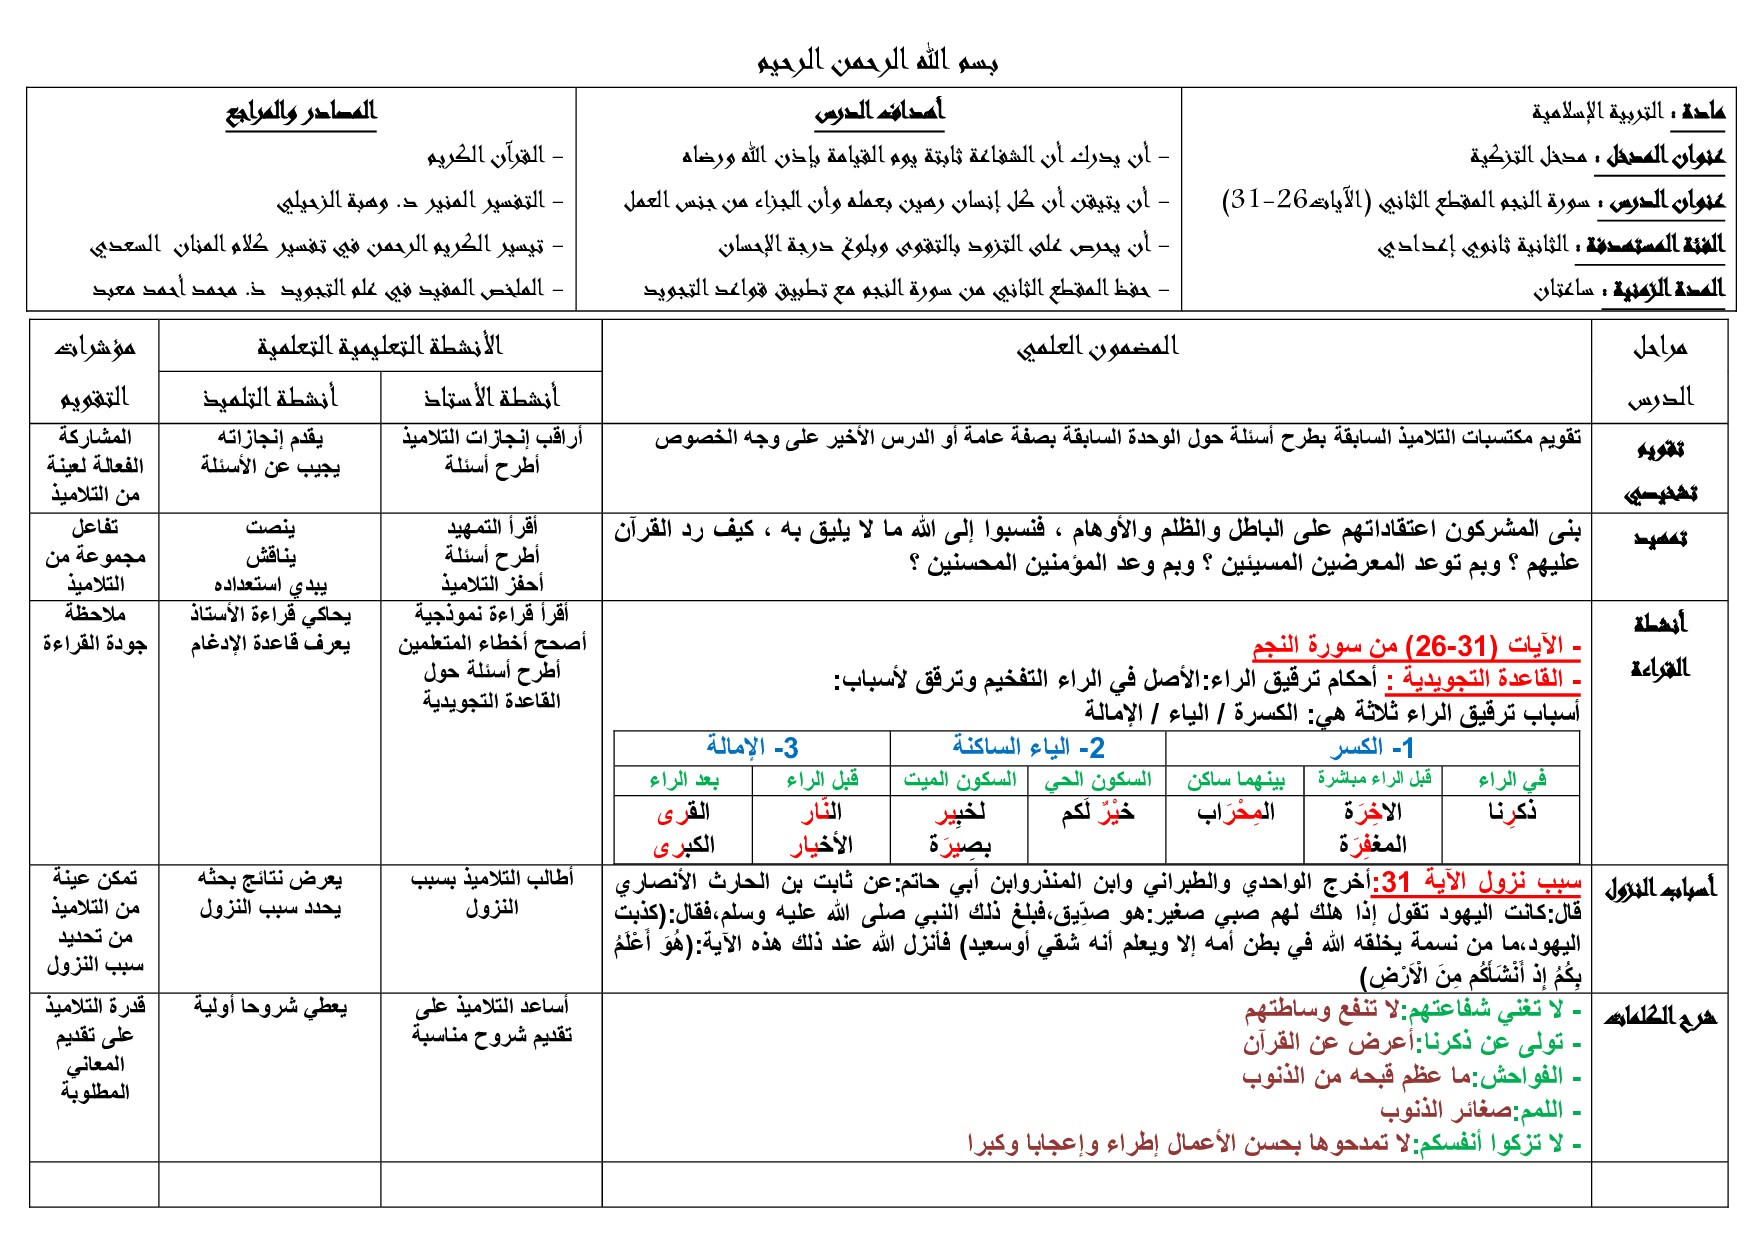 بسم الله الرحمن الرحيم
مادة : التربية الإسلامية
عنوان المدخل : مدخل التزكية
عنوان الدرس : سورة النجم المقطع الثاني (الآيات26-31)
الفئة المستهدفة : الثانية ثانوي إعدادي
المدة الزمنية : ساعتان
أهداف الدرس
- أن يدرك أن الشفاعة ثابتة يوم القيامة بإذن الله ورضاه
- أن يتيقن أن كل إنسان رهين بعمله وأن الجزاء من جنس العمل
- أن يحرص على التزود بالتقوى وبلوغ درجة الإحسان
- حفظ المقطع الثاني من سورة النجم مع تطبيق قواعد التجويد
المصادر والمراجع
- القرآن الكريم
- التفسير المنير د. وهبة الزحيلي
- تيسير الكريم الرحمن في تفسير كلام المنان السعدي
- الملخص المفيد في علم التجويد ذ. محمد أحمد معبد
مراحل
الدرس
المضمون العلمي
الأنشطة التعليمية التعلمية
أنشطة الأستاذ
أنشطة التلميذ
مؤشرات
التقويم
تقويم
تشخيصي
تقويم مكتسبات التلاميذ السابقة بطرح أسئلة حول الوحدة السابقة بصفة عامة أو الدرس الأخير على وجه الخصوص
أراقب إنجازات التلاميذ
أطرح أسئلة
يقدم إنجازاته
يجيب عن الأسئلة
المشاركة
الفعالة لعينة
من التلاميذ
تمهيد
بنى المشركون اعتقاداتهم على الباطل والظلم والأوهام ، فنسبوا إلى الله ما لا يليق به ، كيف رد القرآن
عليهم ؟ وبم توعد المعرضين المسيئين ؟ وبم وعد المؤمنين المحسنين ؟
أقرأ التمهيد
أطرح أسئلة
أحفز التلاميذ
ينصت
يناقش
يبدي استعداده
تفاعل
مجموعة من
التلاميذ
أنشطة
القراءة
- الآيات (31-26) من سورة النجم
- القاعدة التجويدية : أحكام ترقيق الراء:الأصل في الراء التفخيم وترقق لأسباب:
أسباب ترقيق الراء ثلاثة هي: الكسرة / الياء / الإمالة
1- الكسر
2- الياء الساكنة
3- الإمالة
في الراء
قبل الراء مباشرة
بينهما ساكن
السكون الحي
السكون الميت
قبل الراء
بعد الراء
ذكرِنا
الاخِرَة
المغفِرَة
المِحْرَاب
خيْرٌ لَكم
لخبِير
بصِيرَة
النّار
الأخيار
القرى
الكبرى
أقرأ قراءة نموذجية
أصحح أخطاء المتعلمين
أطرح أسئلة حول
القاعدة التجويدية
يحاكي قراءة الأستاذ
يعرف قاعدة الإدغام
ملاحظة
جودة القراءة
أسباب النزول
سبب نزول الآية 31:أخرج الواحدي والطبراني وابن المنذروابن أبي حاتم:عن ثابت بن الحارث الأنصاري
قال:كانت اليهود تقول إذا هلك لهم صبي صغير:هو صدِّيق،فبلغ ذلك النبي صلى الله عليه وسلم،فقال:(كذبت
اليهود،ما من نسمة يخلقه الله في بطن أمه إلا ويعلم أنه شقي أوسعيد) فأنزل الله عند ذلك هذه الآية:(هُوَ أَعْلَمُ
بِكُمُ إِذ أَنْشَأَكُم مِنَ الْأَرْضِ)
أطالب التلاميذ بسبب
النزول
يعرض نتائج بحثه
يحدد سبب النزول
تمكن عينة
من التلاميذ
من تحديد
سبب النزول
شرح الكلمات
- لا تغني شفاعتهم:لا تنفع وساطتهم
- تولى عن ذكرنا:أعرض عن القرآن
- الفواحش:ما عظم قبحه من الذنوب
- اللمم:صغائر الذنوب
- لا تزكوا أنفسكم:لا تمدحوها بحسن الأعمال إطراء وإعجابا وكبرا
أساعد التلاميذ على
تقديم شروح مناسبة
يعطي شروحا أولية
قدرة التلاميذ
على تقديم
المعاني
المطلوبة